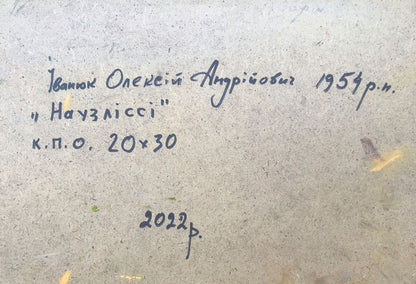 Іванюк Олексій Андрійович 1954 р.н.
"Наузліссі"
к.п.о. 20х30
2022р.